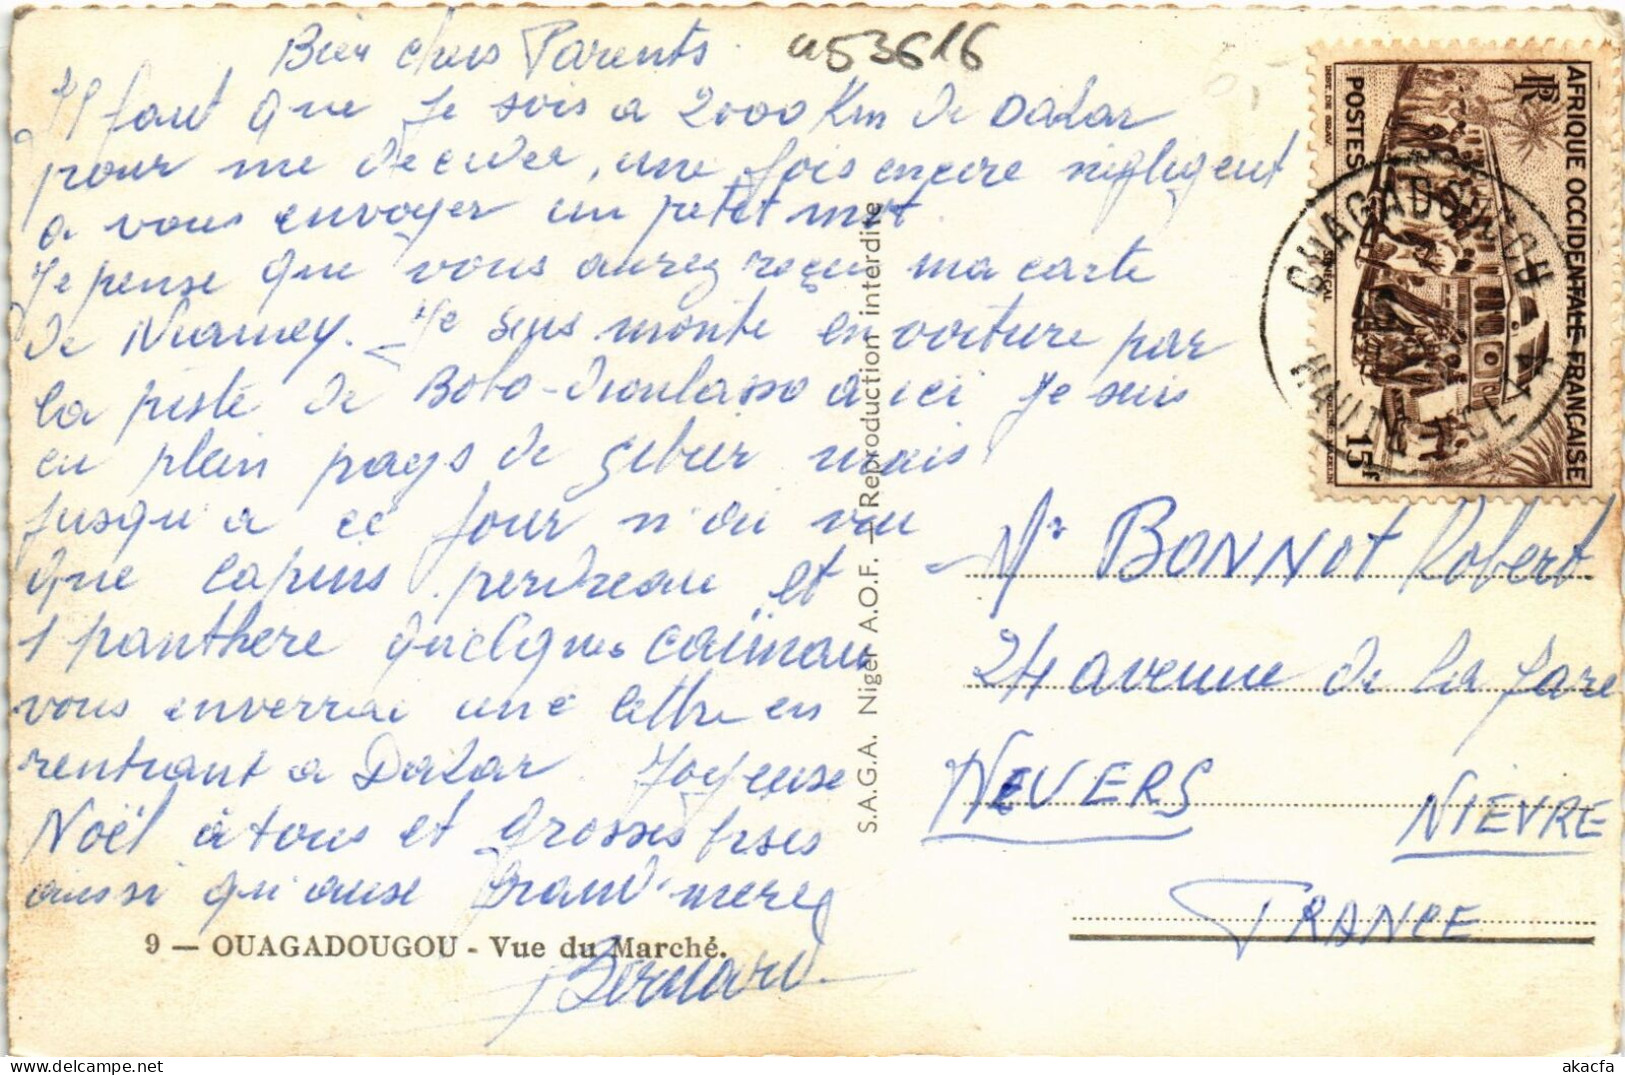 Bien chers Parents.
Il faut que je sois a 2000 Km de Dakar
pour me decider, une fois encore négligent
a vous envoyer un petit mot.
Je pense que vous aurez reçu ma carte
de Niamey. Je suis monté en voiture par
la piste de Bobo-dioulasso a ici Je suis
en plein pays de gibier mais
jusqu'a ce jour n'ai vu
que lapins perdreau et
1 panthere quelques caïman
vous enverrai une lettre en
rentrant a Dakar Joyeuse
Noël à tous et grosses bises
aussi qu'a Grand'mere
Bernard
9 — OUAGADOUGOU - Vue du Marché.
S.A.G.A. Niger A.O.F. — Reproduction interdite
453616
AFRIQUE OCCIDENTALE FRANÇAISE
POSTES
RF
SÉNÉGAL
15f
OUAGADOUGOU
HAUTE VOLTA
Mr BONNOT Robert
24 avenue de la gare
NEVERS
NIEVRE
FRANCE
akacfa